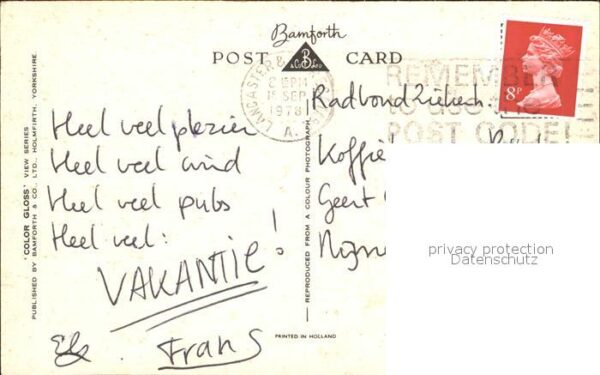 Bamforth
POST CARD
B
& Co Ltd
LANCASTER &
2 15PM
15 SEP
1978
A
REMEMBER
to use
POST CODE
8P
Heel veel plezier
Heel veel wind
Heel veel pubs
Heel veel:
VAKANTIE!
Frans
Koffie
Geert
'COLOR GLOSS' VIEW SERIES
PUBLISHED BY BAMFORTH & CO., LTD., HOLMFIRTH, YORKSHIRE.
REPRODUCED FROM A COLOUR PHOTOGRAPH
PRINTED IN HOLLAND
privacy protection
Datenschutz